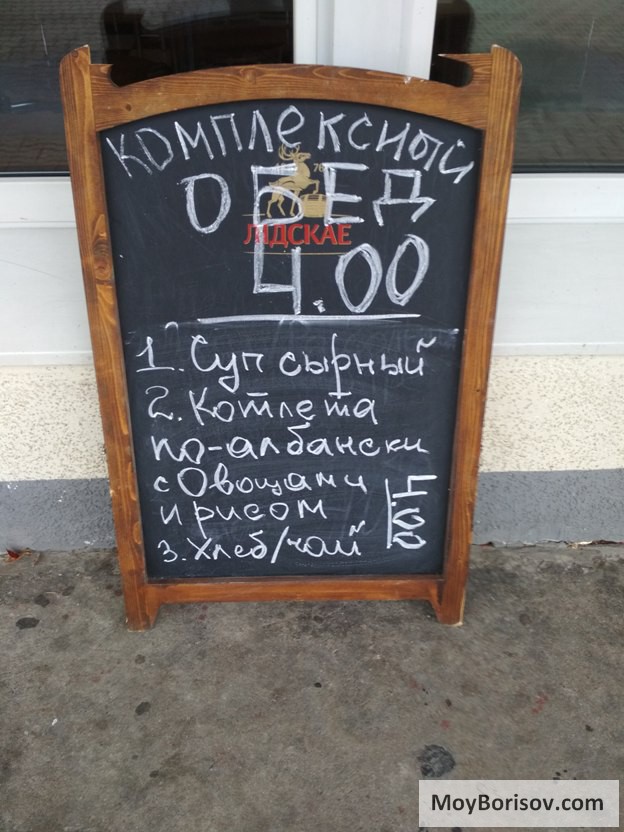 КОМПЛЕКСНЫЙ
ОБЕД
ЛІДСКАЕ
4.00
1. Суп сырный
2. Котлета
по-албански
с Овощами
и рисом
3. Хлеб/чай
4.00
MoyBorisov.com